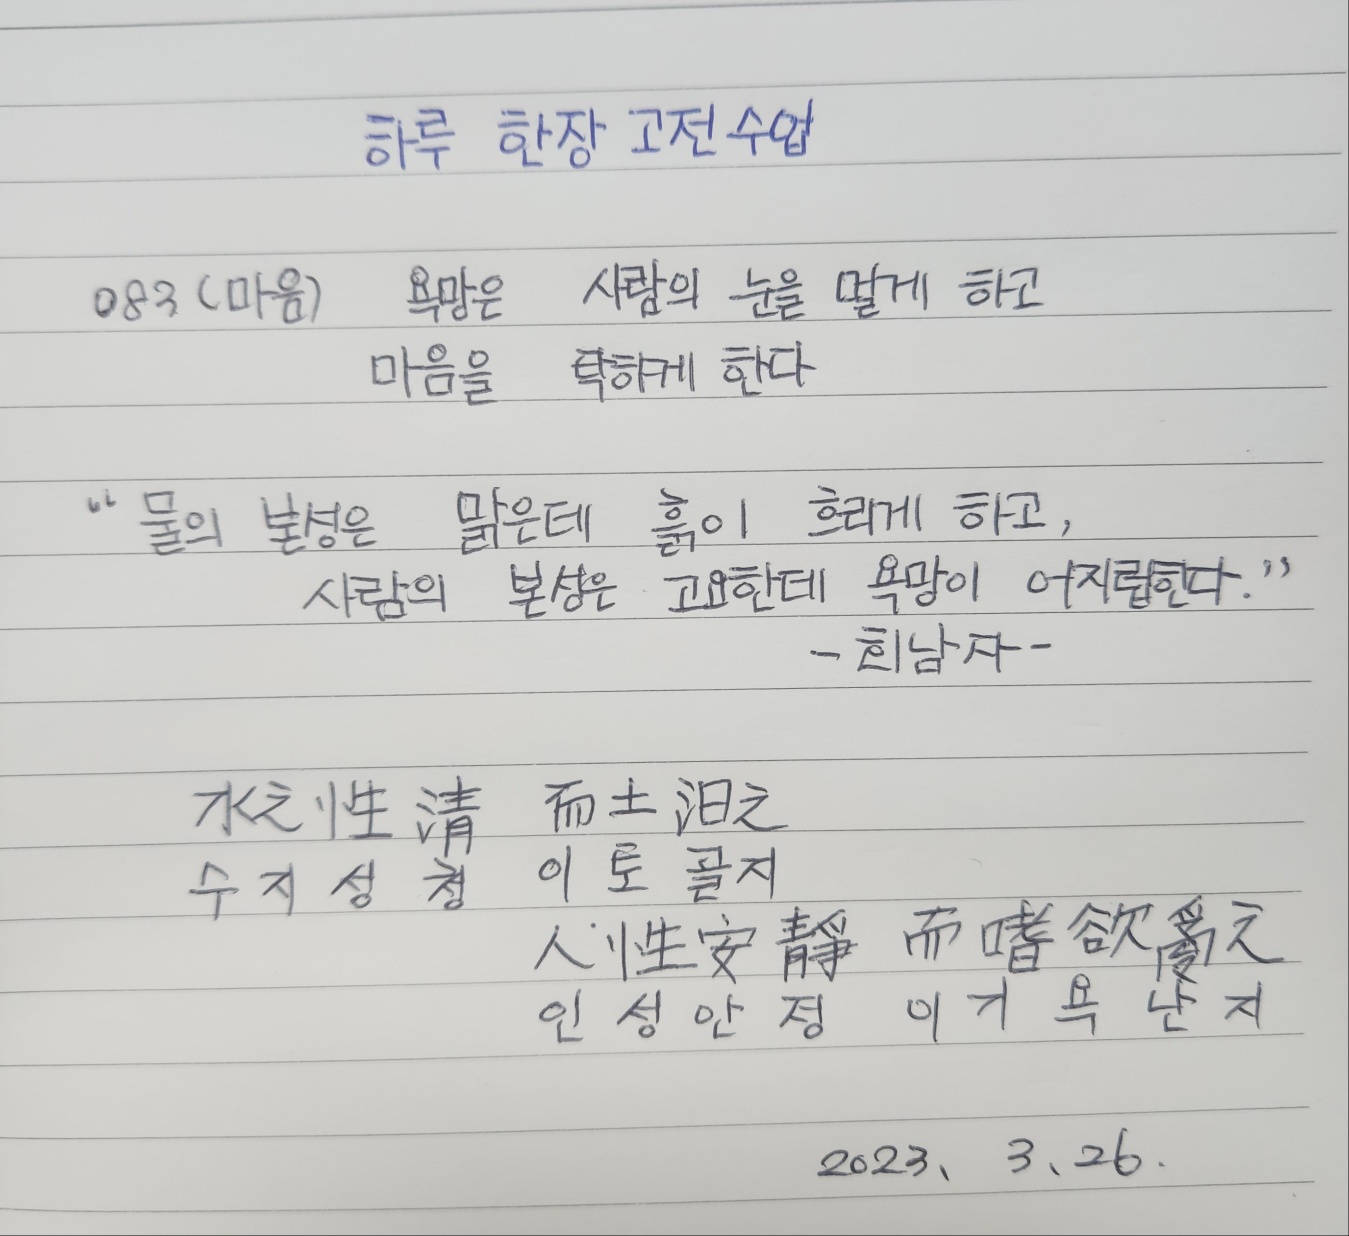 하루 한장 고전수업
083 (마음) 욕망은 사람의 눈을 멀게 하고
마음을 탁하게 한다
“물의 본성은 맑은데 흙이 흐리게 하고,
사람의 본성은 고요한데 욕망이 어지럽힌다.”
- 회남자 -
水之性淸 而土汩之
수지성청 이토골지
人性安靜 而嗜欲亂之
인성안정 이기욕난지
2023. 3. 26.